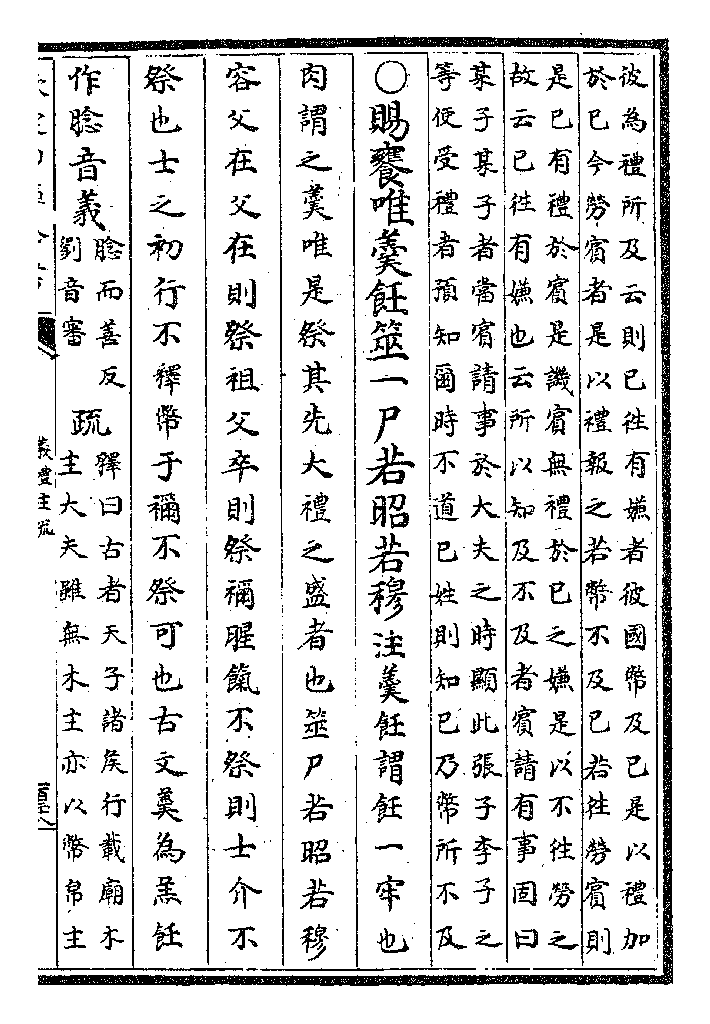 彼為禮所及云則已往有嫌者彼國幣及已是以禮加
於已今勞賓者是以禮報之若幣不及已若往勞賓則
是已有禮於賓是譏賓無禮於已之嫌是以不往勞之
故云已往有嫌也云所以知及不及者賓請有事固曰
某子某子者當賓請事於大夫之時顯此張子李子之
等便受禮者預知爾時不道已姓則知已乃幣所不及
○賜饔唯羹飪筮一尸若昭若穆注羹飪謂飪一牢也
肉謂之羹唯是祭其先大禮之盛者也筮尸若昭若穆
容父在父在則祭祖父卒則祭禰腥餼不祭則士介不
祭也士之初行不釋幣于禰不祭可也古文羹為羔飪
作腍音義腍而善反劉音審疏釋曰古者天子諸侯行載廟木
主大夫雖無木主亦以幣帛主
儀禮注疏